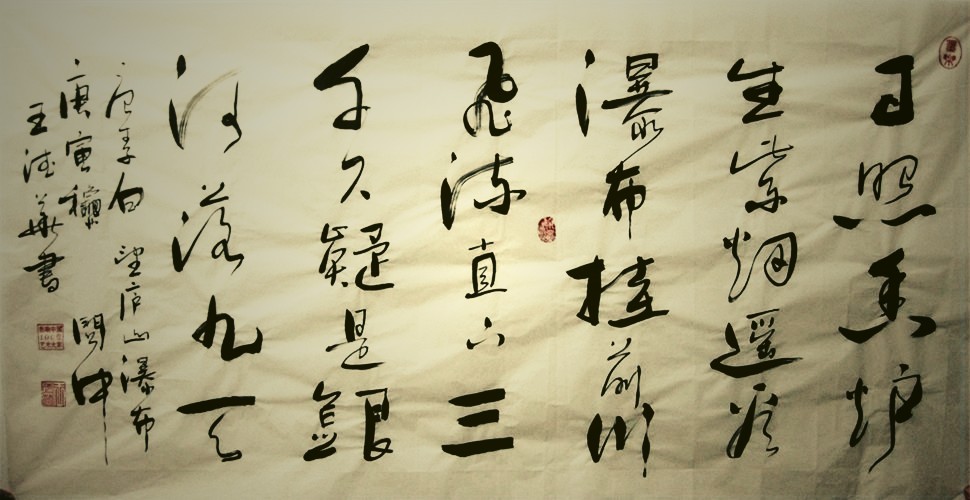 日照香炉
生紫烟遥看
瀑布挂前川
飞流直下三
千尺疑是銀
河落九天
唐李白望庐山瀑布
庚寅龝閩中
王華書